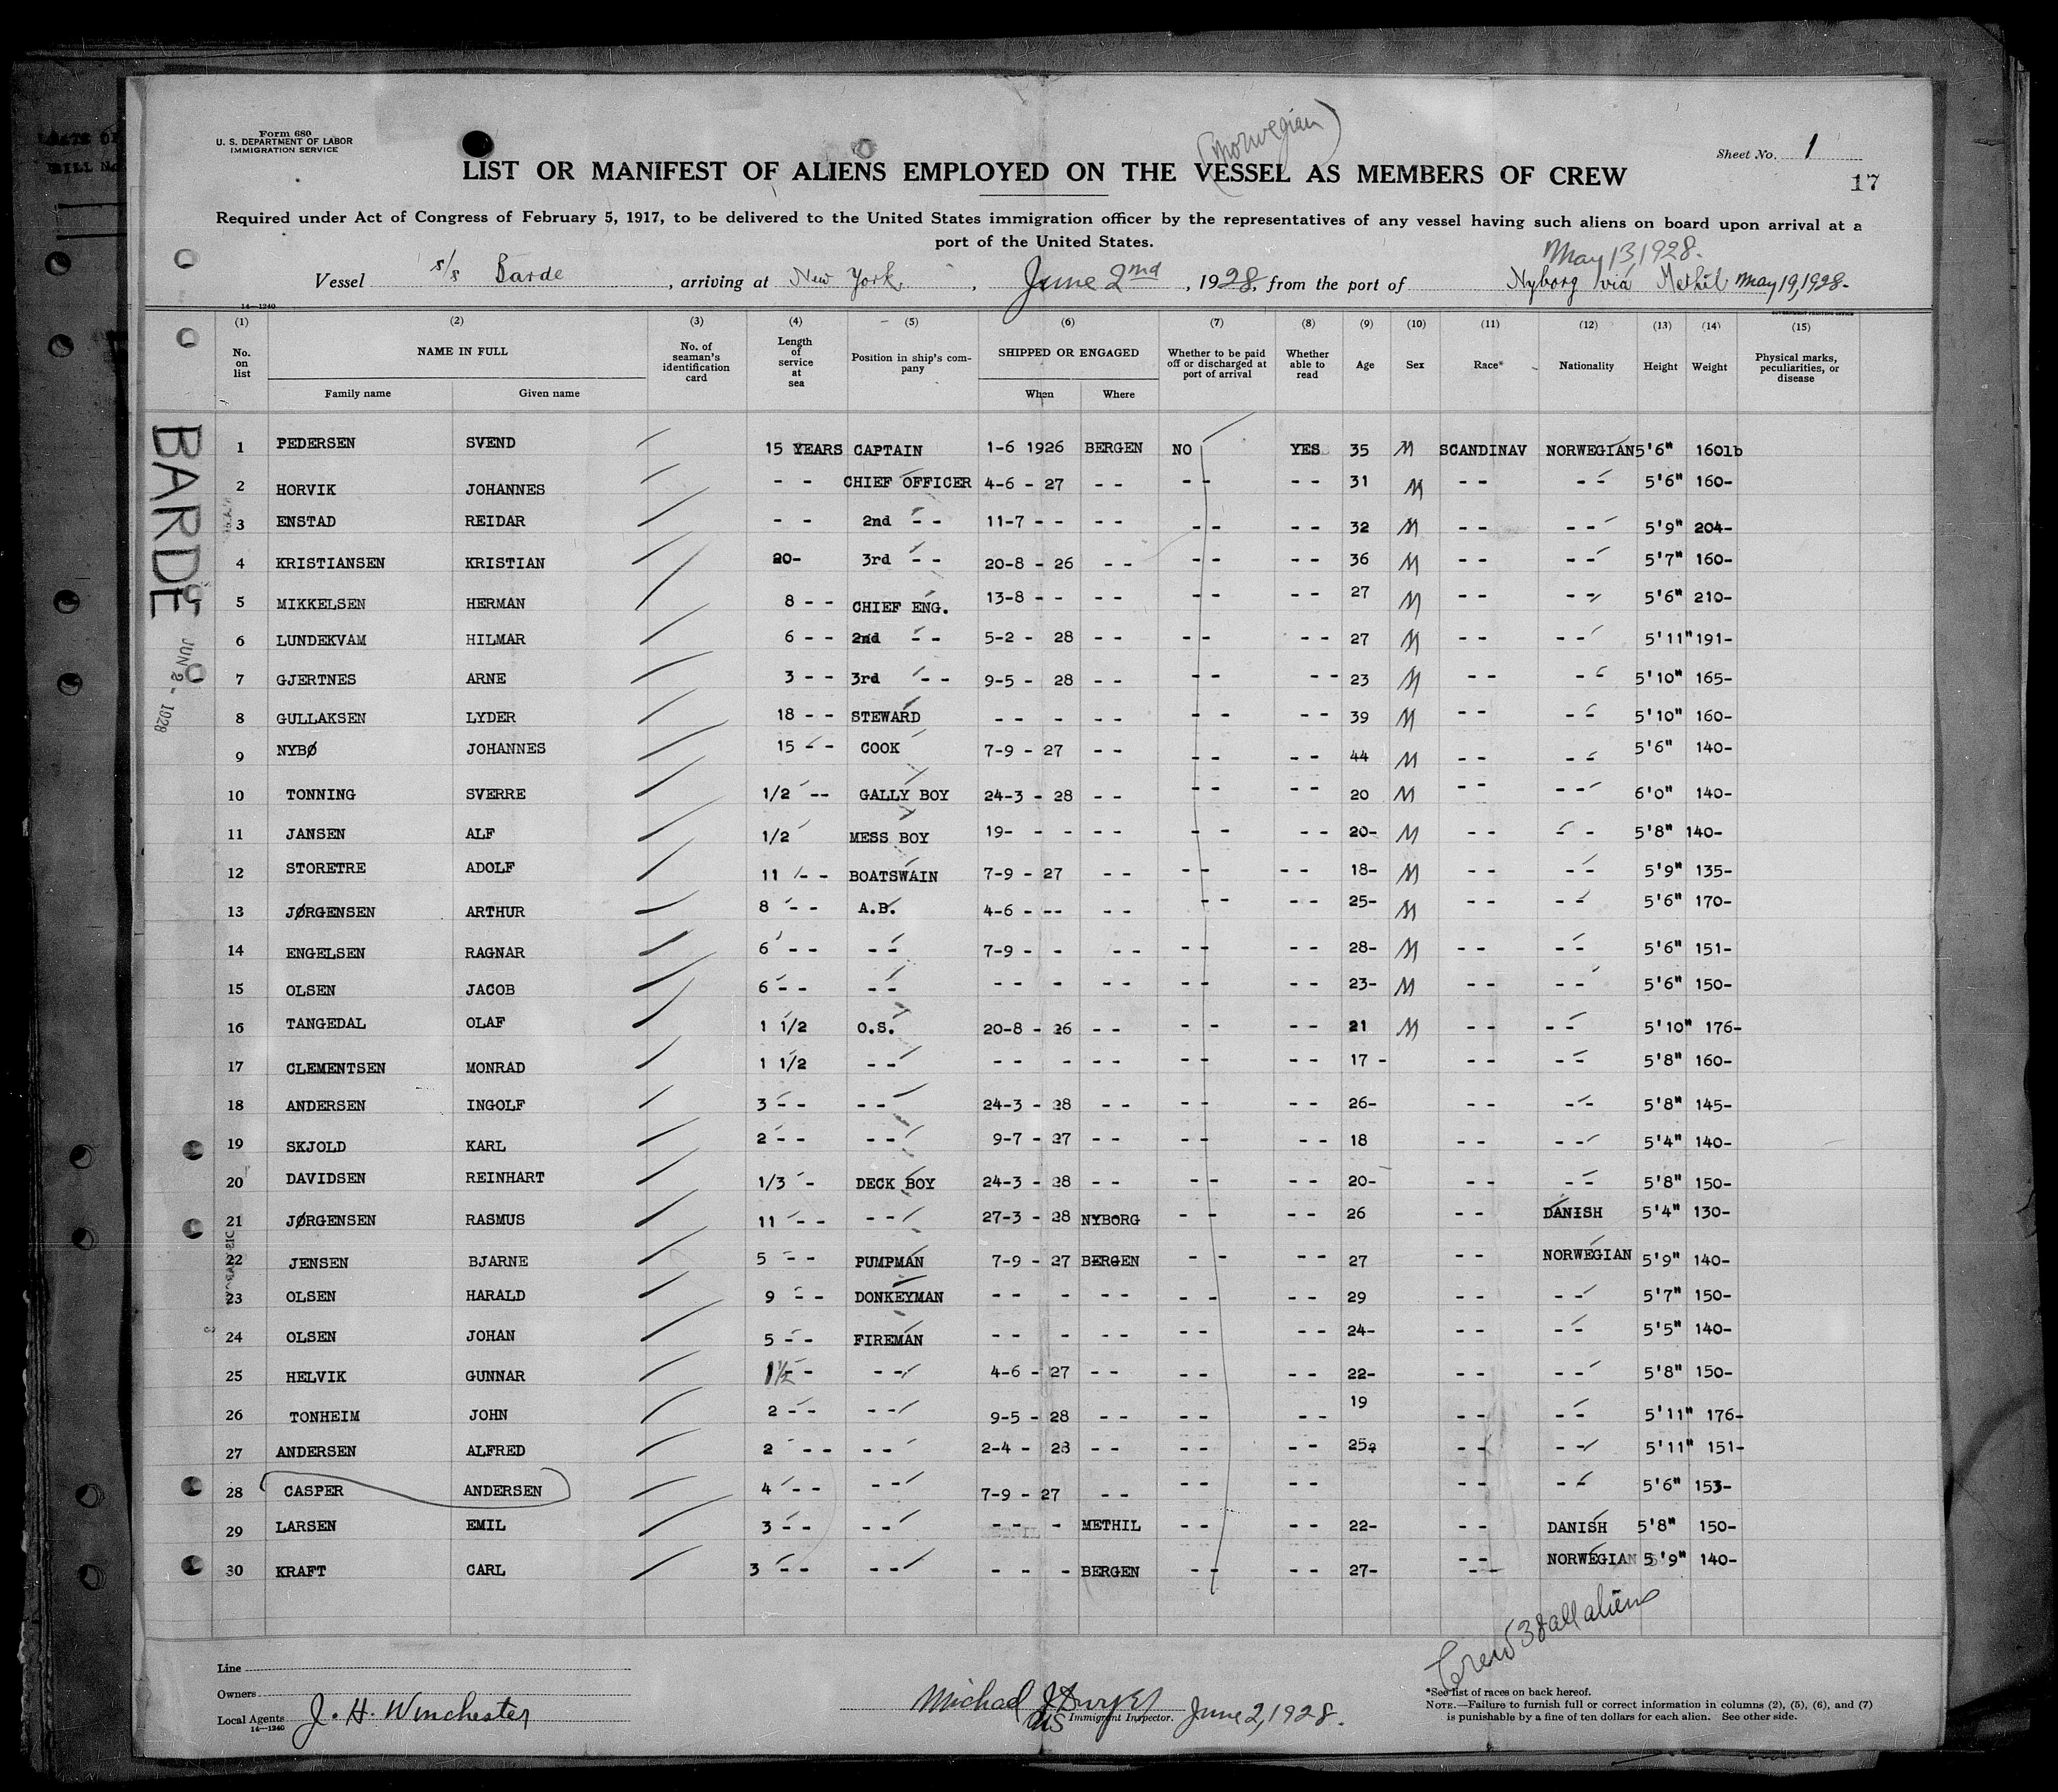 Form 680
U. S. DEPARTMENT OF LABOR
IMMIGRATION SERVICE
(Norwegian)
Sheet No. 1
17
LIST OR MANIFEST OF ALIENS EMPLOYED ON THE VESSEL AS MEMBERS OF CREW
Required under Act of Congress of February 5, 1917, to be delivered to the United States immigration officer by the representatives of any vessel having such aliens on board upon arrival at a
port of the United States.
May 13, 1928.
Vessel s/s Barde, arriving at New York, June 2nd, 1928, from the port of Nyborg via Methil May 19, 1928.
14—1240
(1) (2) (3) (4) (5) (6) (7) (8) (9) (10) (11) (12) (13) (14) (15)
No. on list NAME IN FULL No. of seaman's identification card Length of service at sea Position in ship's company SHIPPED OR ENGAGED Whether to be paid off or discharged at port of arrival Whether able to read Age Sex Race* Nationality Height Weight Physical marks, peculiarities, or disease
Family name Given name When Where
BARDE
JUN 2 - 1928
1 PEDERSEN SVEND 15 YEARS CAPTAIN 1-6 1926 BERGEN NO YES 35 M SCANDINAV NORWEGIAN 5'6" 160lb
2 HORVIK JOHANNES - - CHIEF OFFICER 4-6 - 27 - - - - - - 31 M - - - - 5'6" 160-
3 ENSTAD REIDAR - - 2nd - - 11-7 - - - - - - - - 32 M - - - - 5'9" 204-
4 KRISTIANSEN KRISTIAN 20- 3rd - - 20-8 - 26 - - - - - - 36 M - - - - 5'7" 160-
5 MIKKELSEN HERMAN 8 - - CHIEF ENG. 13-8 - - - - - - - - 27 M - - - - 5'6" 210-
6 LUNDEKVAM HILMAR 6 - - 2nd - - 5-2 - 28 - - - - - - 27 M - - - - 5'11" 191-
7 GJERTNES ARNE 3 - - 3rd - - 9-5 - 28 - - - - - - 23 M - - - - 5'10" 165-
8 GULLAKSEN LYDER 18 - - STEWARD - - - - - - - - - 39 M - - - - 5'10" 160-
9 NYBØ JOHANNES 15 - - COOK 7-9 - 27 - - - - - - 44 M - - - - 5'6" 140-
10 TONNING SVERRE 1/2 -- GALLY BOY 24-3 - 28 - - - - - - 20 M - - - - 6'0" 140-
11 JANSEN ALF 1/2 MESS BOY 19- - - - - - - - - 20- M - - - - 5'8" 140-
12 STORETRE ADOLF 11 - - BOATSWAIN 7-9 - 27 - - - - - - 18- M - - - - 5'9" 135-
13 JØRGENSEN ARTHUR 8 - - A.B. 4-6 - -- - - - - - - 25- M - - - - 5'6" 170-
14 ENGELSEN RAGNAR 6 - - - - 7-9 - - - - - - - - 28- M - - - - 5'6" 151-
15 OLSEN JACOB 6 - - - - - - - - - - - - - 23- M - - - - 5'6" 150-
16 TANGEDAL OLAF 1 1/2 O.S. 20-8 - 26 - - - - - - 21 M - - - - 5'10" 176-
17 CLEMENTSEN MONRAD 1 1/2 - - - - - - - - - - - 17 - - - - - 5'8" 160-
18 ANDERSEN INGOLF 3 - - - - 24-3 - 28 - - - - - - 26- - - - - 5'8" 145-
19 SKJOLD KARL 2 - - - - 9-7 - 27 - - - - - - 18 - - - - 5'4" 140-
20 DAVIDSEN REINHART 1/3 - DECK BOY 24-3 - 28 - - - - - - 20- - - - - 5'8" 150-
21 JØRGENSEN RASMUS 11 - - - - 27-3 - 28 NYBORG - - - - 26 - - DANISH 5'4" 130-
22 JENSEN BJARNE 5 - - PUMPMAN 7-9 - 27 BERGEN - - - - 27 - - NORWEGIAN 5'9" 140-
23 OLSEN HARALD 9 - - DONKEYMAN - - - - - - - - - 29 - - - - 5'7" 150-
24 OLSEN JOHAN 5 - - FIREMAN - - - - - - - - - 24- - - - - 5'5" 140-
25 HELVIK GUNNAR 1½ - - - - 4-6 - 27 - - - - - - 22- - - - - 5'8" 150-
26 TONHEIM JOHN 2 - - - - 9-5 - 28 - - - - - - 19 - - - - 5'11" 176-
27 ANDERSEN ALFRED 2 - - - - 2-4 - 28 - - - - - - 25 - - - - 5'11" 151-
28 CASPER ANDERSEN 4 - - - - 7-9 - 27 - - - - - - - - - - 5'6" 153-
29 LARSEN EMIL 3 - - - - - - - METHIL - - - - 22- - - DANISH 5'8" 150-
30 KRAFT CARL 3 - - - - - - - BERGEN - - - - 27- - - NORWEGIAN 5'9" 140-
Crew 38 all aliens
Line
Owners
Local Agents J. H. Winchester
14—1240
Michael J Dwyer
Immigrant Inspector. June 2, 1928.
*See list of races on back hereof.
NOTE.—Failure to furnish full or correct information in columns (2), (5), (6), and (7)
is punishable by a fine of ten dollars for each alien. See other side.